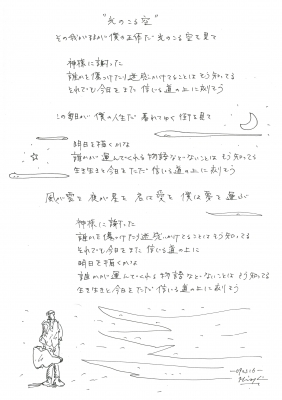 "光のこる空"
その我がままが 僕の正体だ 光のこる空を見て
神様に謝った
誰かを傷つけたり迷惑かけてることは もう知ってる
それでも今日をまた 信じる道の上に刻そう
この毎日が 僕の人生だ 暮れてゆく 街を見て
明日を描くかな
誰かが運んでくれる物語など〜ないことは もう知ってる
生き生きと今日をただ 信じる道の上に刻そう
風が愛を 夜が星を 君は愛を 僕は夢を 運ぶ
神様に謝った
誰かを傷つけたり迷惑かけてることは もう知ってる
それでも今日をまた 信じる道の上に
明日を描くかな
誰かが運んでくれる物語など〜ないことは もう知ってる
生き生きと今日をただ 信じる道の上に刻そう